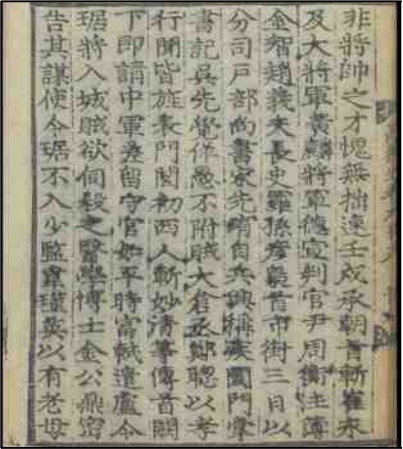 非將帥之才愧無拙速壬戌承朝旨斬崔永
及大將軍黃麟將軍德宣判官尹周衡主簿
金智趙義夫長史羅孫彦梟首市街三日以
分司戶部尚書宋先宥自兵興稱疾闔門掌
書記吳先覺佯愚不附賊大倉丞鄭聰以孝
行聞皆旌表門閭初西人斬妙淸等傳首闕
下即請中軍差留守官如平時富軾遣盧令
琚將入城賊欲伺殺之醫學博士金公鼎密
告其謀使令琚不入少監瑾英以有老母